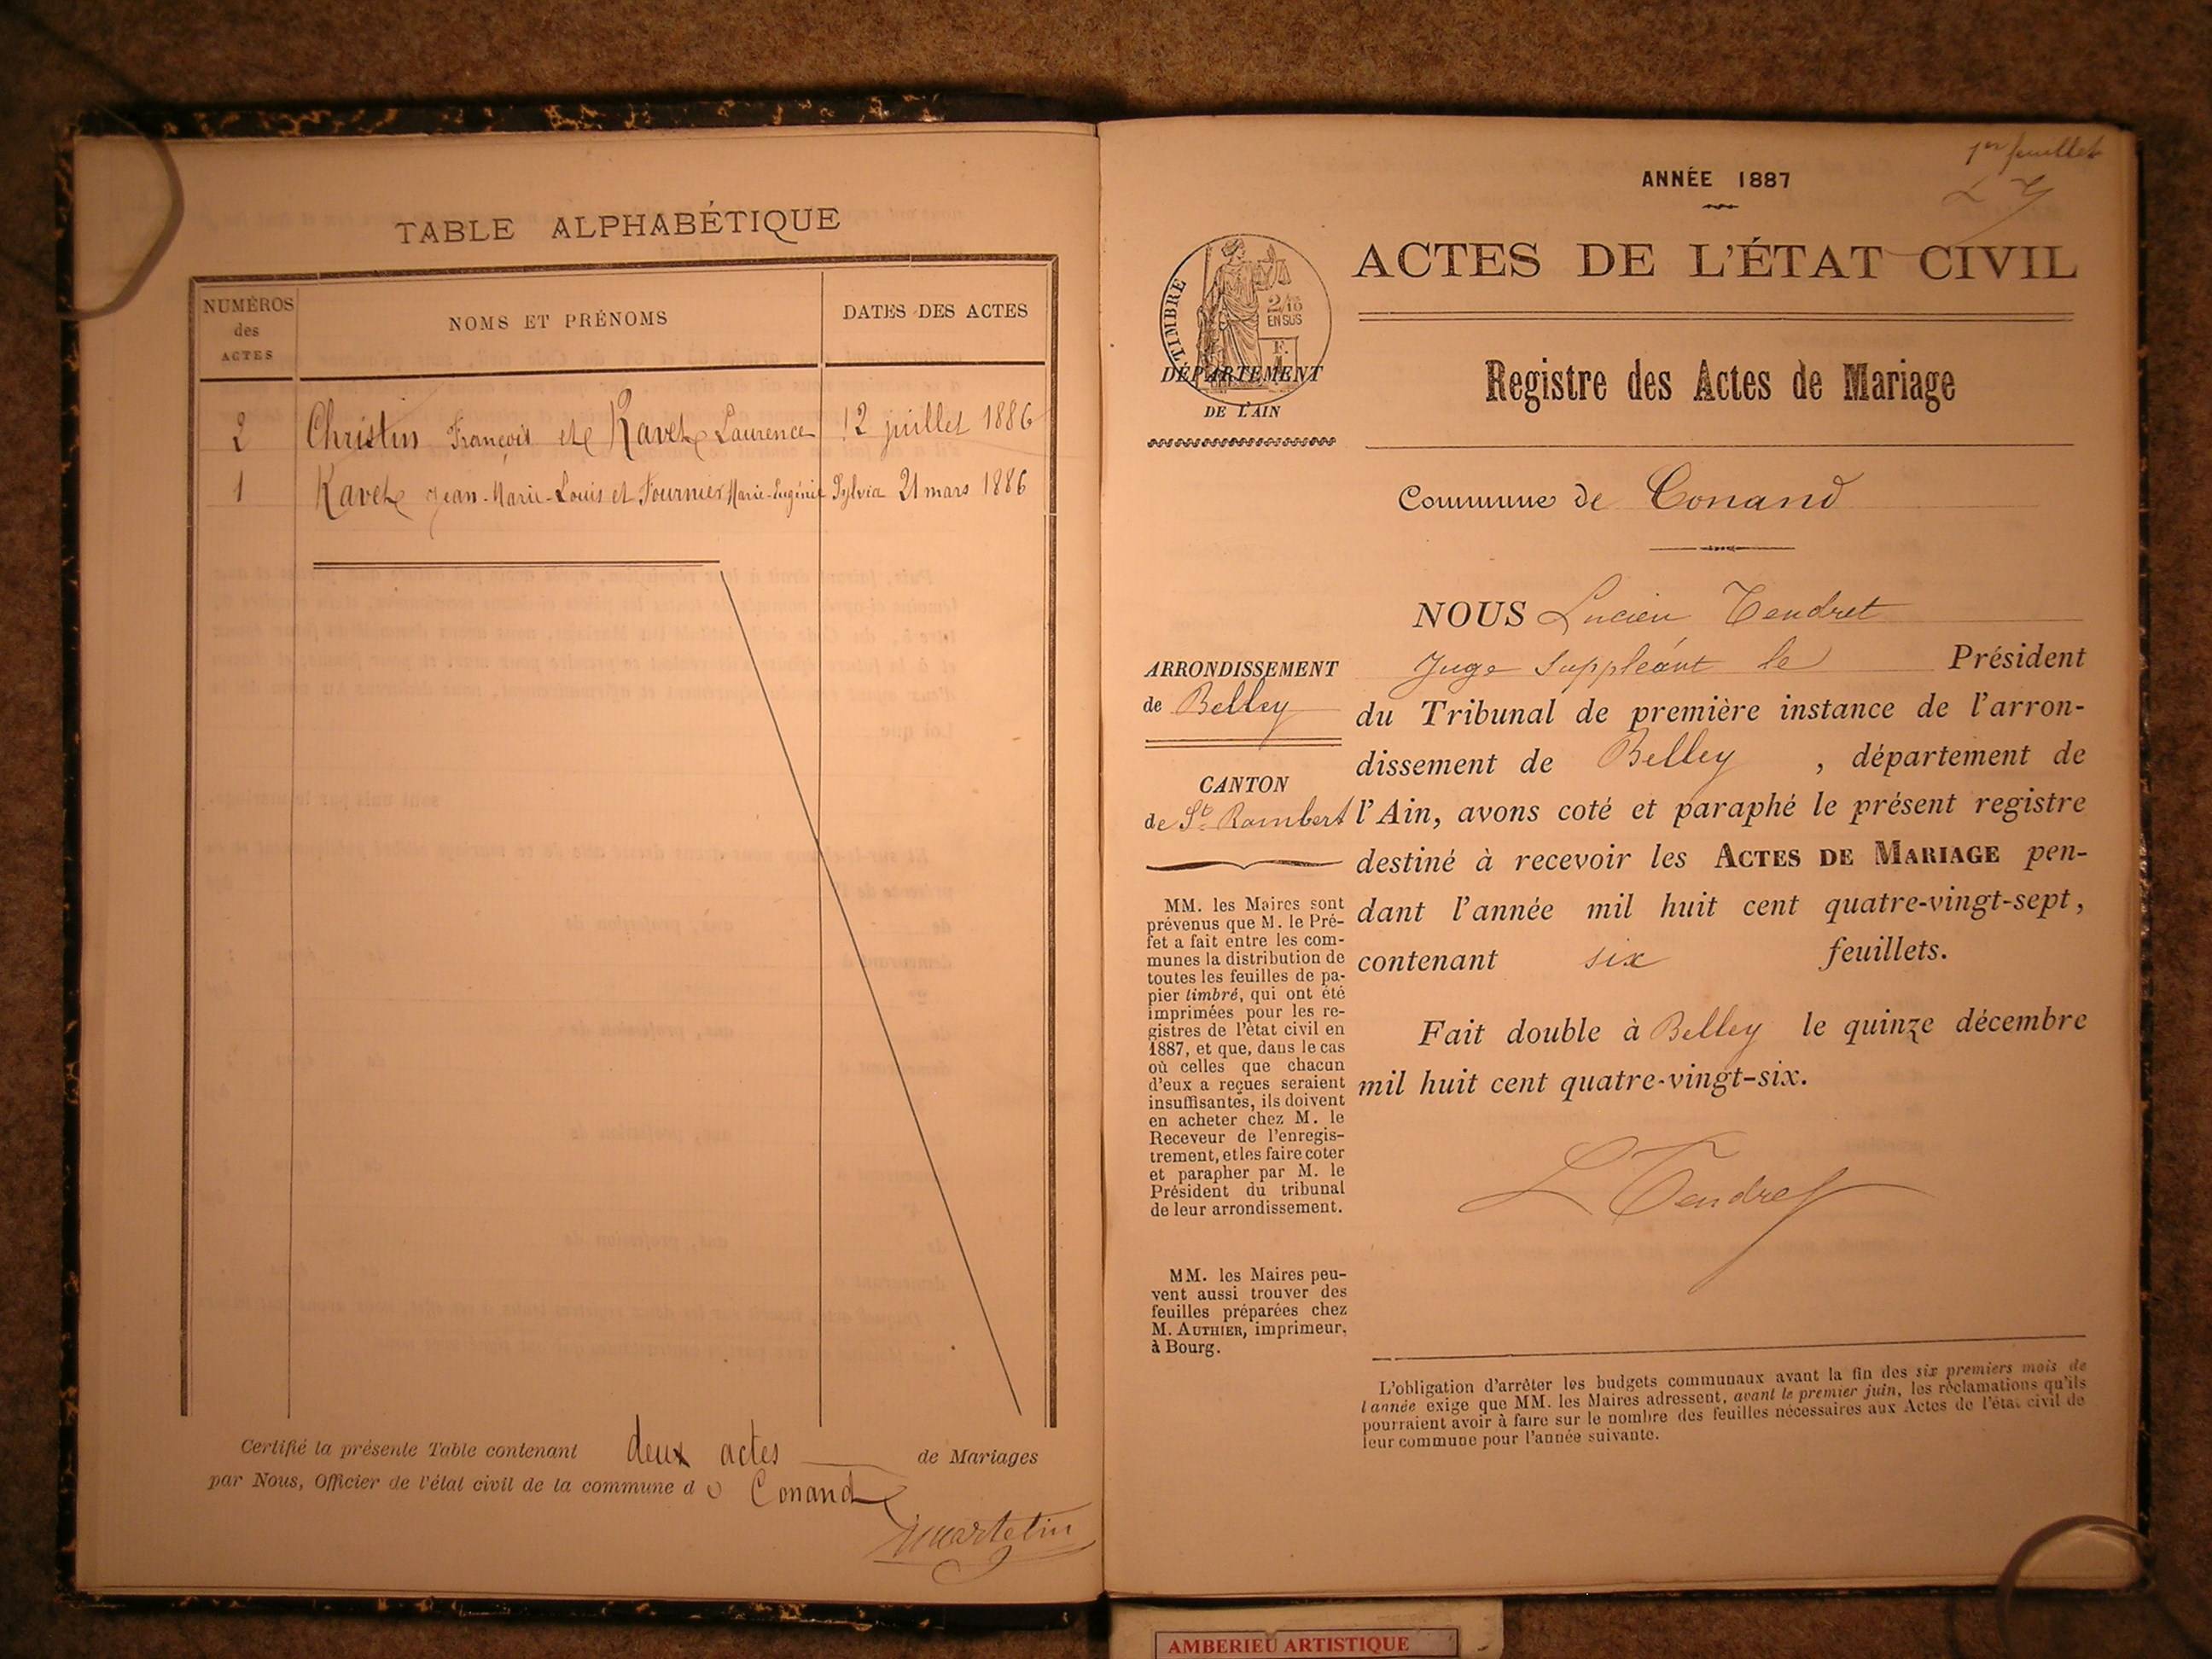 TABLE ALPHABÉTIQUE
NUMÉROS
des
ACTES
NOMS ET PRÉNOMS
DATES DES ACTES
2 Christin François et Ravet Laurence 12 juillet 1886
1 Ravet Jean-Marie-Louis et Fournier Marie-Eugénie Sylvia 21 mars 1886
Certifié la présente Table contenant deux actes de Mariages
par Nous, Officier de l'état civil de la commune de Conand
Martelin
1er feuillet
ANNÉE 1887
ACTES DE L'ÉTAT CIVIL
TIMBRE
2/10
EN SUS
F.
DÉPARTEMENT
DE L'AIN
Registre des Actes de Mariage
Commune de Conand
ARRONDISSEMENT
de Belley
CANTON
de St Rambert
MM. les Maires sont
prévenus que M. le Pré-
fet a fait entre les com-
munes la distribution de
toutes les feuilles de pa-
pier timbré, qui ont été
imprimées pour les re-
gistres de l'état civil en
1887, et que, dans le cas
où celles que chacun
d'eux a reçues seraient
insuffisantes, ils doivent
en acheter chez M. le
Receveur de l'enregis-
trement, et les faire coter
et parapher par M. le
Président du tribunal
de leur arrondissement.
MM. les Maires peu-
vent aussi trouver des
feuilles préparées chez
M. AUTHIER, imprimeur,
à Bourg.
NOUS Lucien Tendret
Juge Suppléant le Président
du Tribunal de première instance de l'arron-
dissement de Belley , département de
l'Ain, avons coté et paraphé le présent registre
destiné à recevoir les ACTES DE MARIAGE pen-
dant l'année mil huit cent quatre-vingt-sept,
contenant six feuillets.
Fait double à Belley le quinze décembre
mil huit cent quatre-vingt-six.
L Tendret
L'obligation d'arrêter les budgets communaux avant la fin des six premiers mois de
l'année exige que MM. les Maires adressent, avant le premier juin, les réclamations qu'ils
pourraient avoir à faire sur le nombre des feuilles nécessaires aux Actes de l'état civil de
leur commune pour l'année suivante.
AMBERIEU ARTISTIQUE